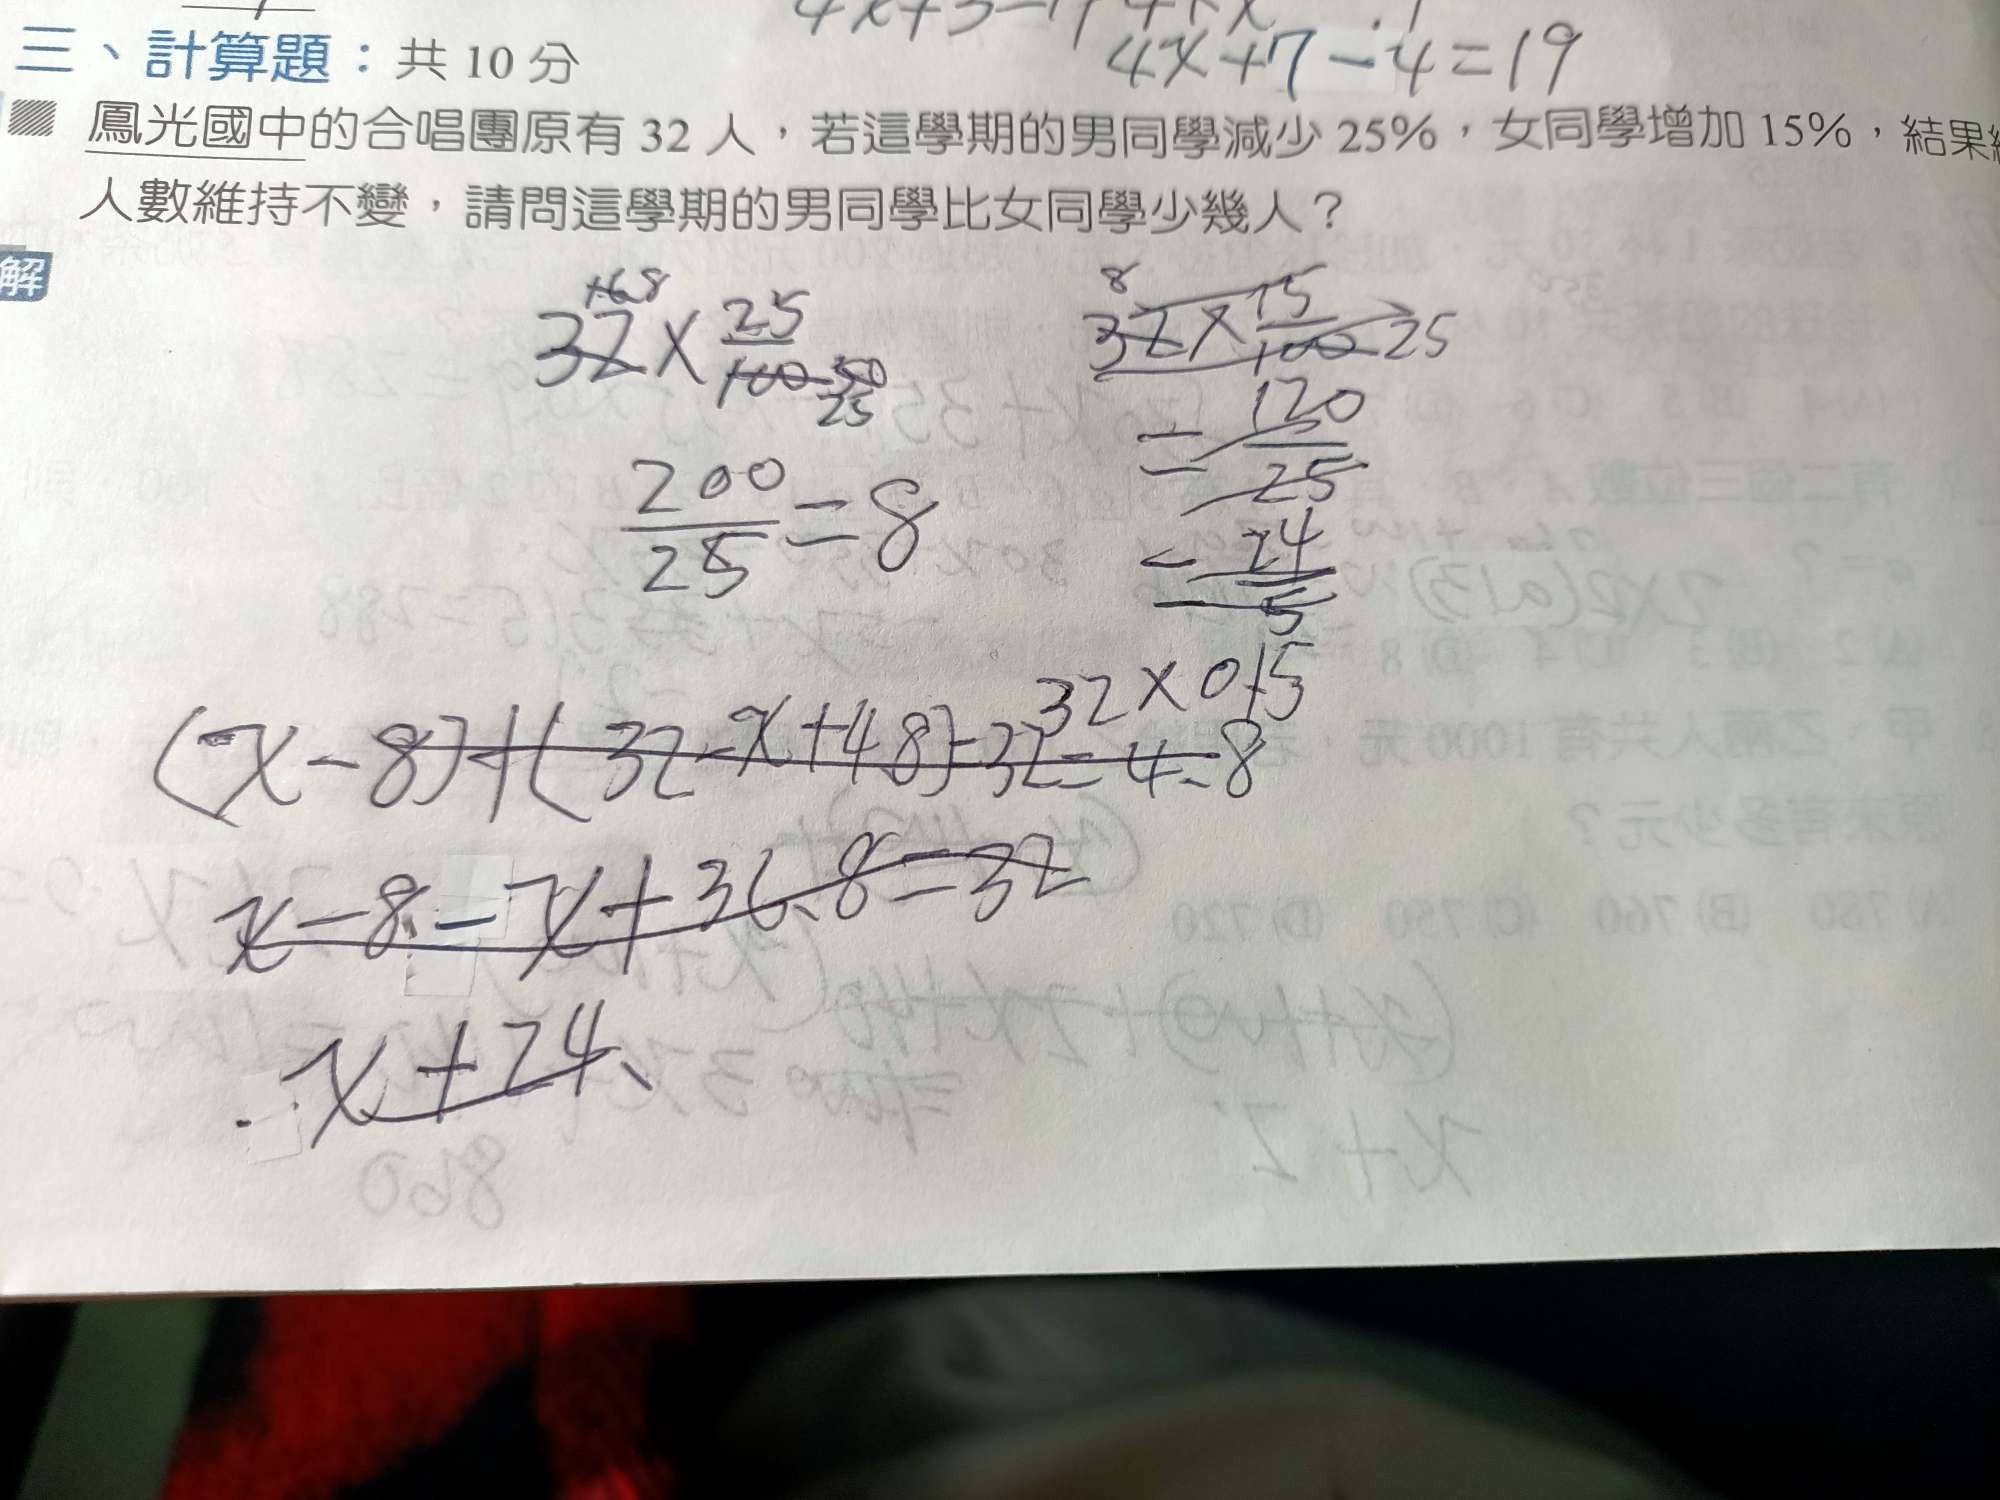 三、計算題：共 10 分
4x+7-4=19
鳳光國中的合唱團原有 32 人，若這學期的男同學減少 25%，女同學增加 15%，結果
人數維持不變，請問這學期的男同學比女同學少幾人？
解
32×25/100 50 25
8
32×15/100 25
=120/25
200/25=8
=24/5
32×0.15
(x-8)+(32-x+4.8)=32=4.8
x-8-x+36.8=32
x+24.